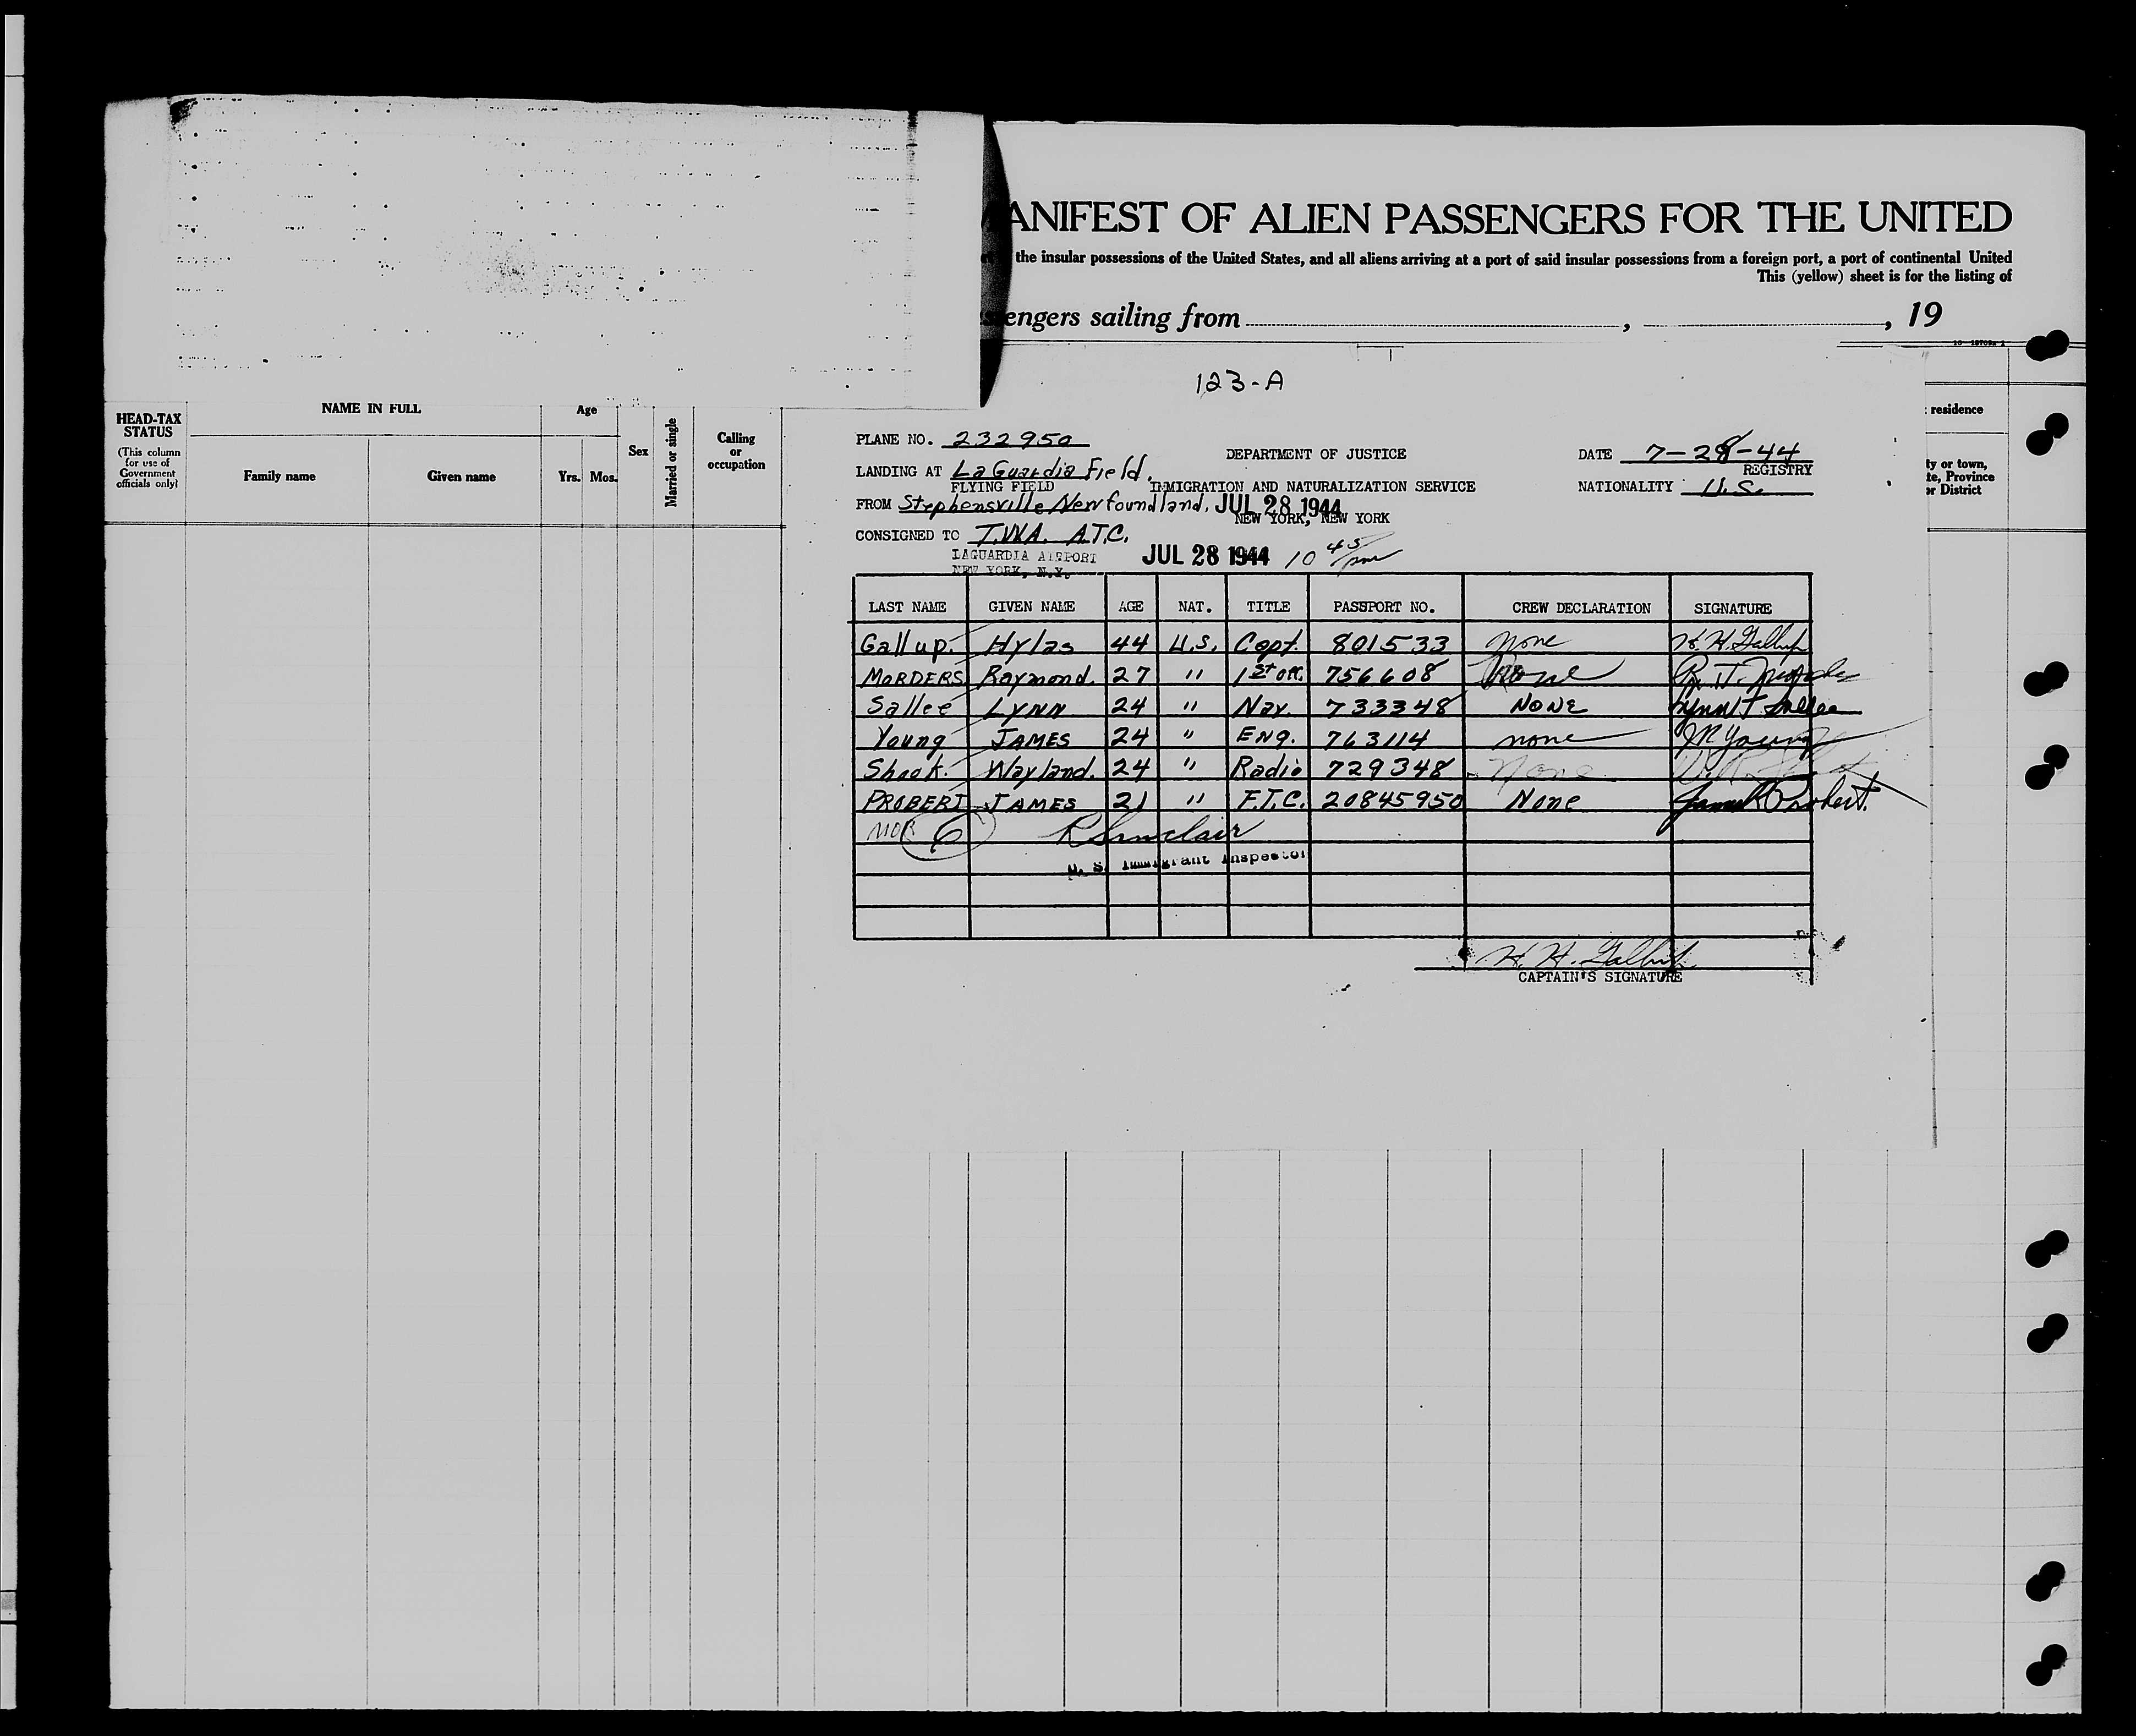 ANIFEST OF ALIEN PASSENGERS FOR THE UNITED
the insular possessions of the United States, and all aliens arriving at a port of said insular possessions from a foreign port, a port of continental United
This (yellow) sheet is for the listing of
engers sailing from , , 19
123-A
HEAD-TAX STATUS
(This column for use of Government officials only)
NAME IN FULL
Family name
Given name
Age
Yrs.
Mos.
Sex
Married or single
Calling or occupation
residence
ty or town,
te, Province
or District
PLANE NO. 232950
DEPARTMENT OF JUSTICE
DATE 7-28-44
REGISTRY
LANDING AT LaGuardia Field,
FLYING FIELD
IMMIGRATION AND NATURALIZATION SERVICE
NATIONALITY U.S.
FROM Stephensville Newfoundland, JUL 28 1944
NEW YORK, NEW YORK
CONSIGNED TO T.W.A. A.T.C.
LAGUARDIA AIRPORT
NEW YORK, N.Y.
JUL 28 1944 10 45 pm
LAST NAME GIVEN NAME AGE NAT. TITLE PASSPORT NO. CREW DECLARATION SIGNATURE
Gallup. Hylas 44 U.S. Capt. 801533 none H. H. Gallup
MORDERS Raymond. 27 " 1st off. 756608 None
Sallee LYNN 24 " Nav. 733348 NONE Lynn T Sallee
Young JAMES 24 " Eng. 763114 none JR Young
Shook. Wayland. 24 " Radio 729348 None
PROBERT JAMES 21 " F.T.C. 20845950 None James Probert.
6 R Sinclair
U. S. Immigrant Inspector
H. H. Gallup
CAPTAIN'S SIGNATURE